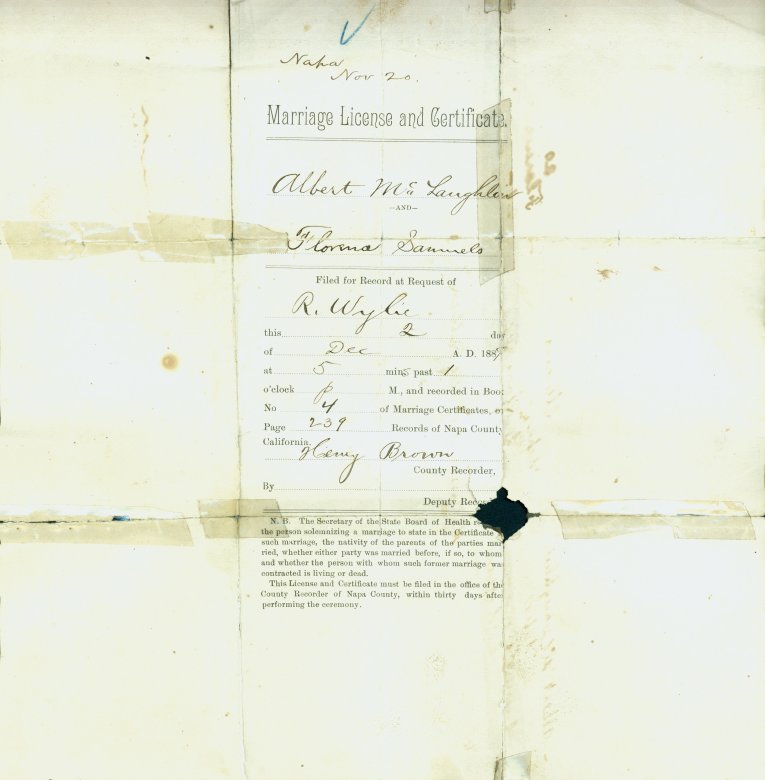 Napa
Nov 20.
Marriage License and Certificate.
Albert Mc Laughlin
—AND—
Florence Samuels
Filed for Record at Request of
R. Wylie
this 2 day
of Dec A. D. 188
at 5 mins past 1
o'clock P M., and recorded in Boo
No 4 of Marriage Certificates, o
Page 239 Records of Napa County
California.
Henry Brown
County Recorder,
By
Deputy Reco
N. B. The Secretary of the State Board of Health re
the person solemnizing a marriage to state in the Certificate
such marriage, the nativity of the parents of the parties mar
ried, whether either party was married before, if so, to whom
and whether the person with whom such former marriage wa
contracted is living or dead.
This License and Certificate must be filed in the office of the
County Recorder of Napa County, within thirty days afte
performing the ceremony.